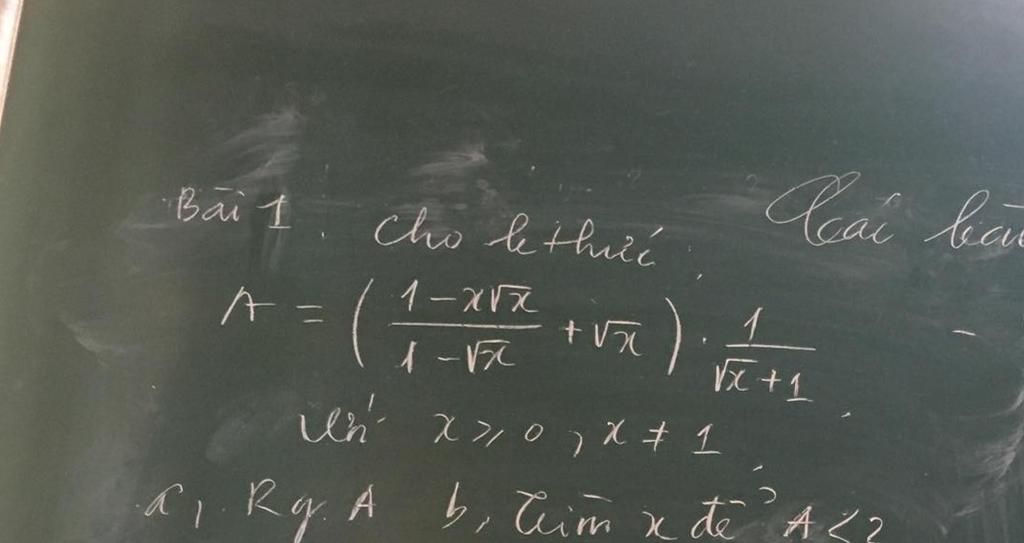 Bài 1. Cho b thức:
A = ( (1 - x√x)/(1 - √x) + √x ) . 1/(√x + 1)
Với x ≥ 0, x ≠ 1
a, Rg. A b, Tìm x để A < 2